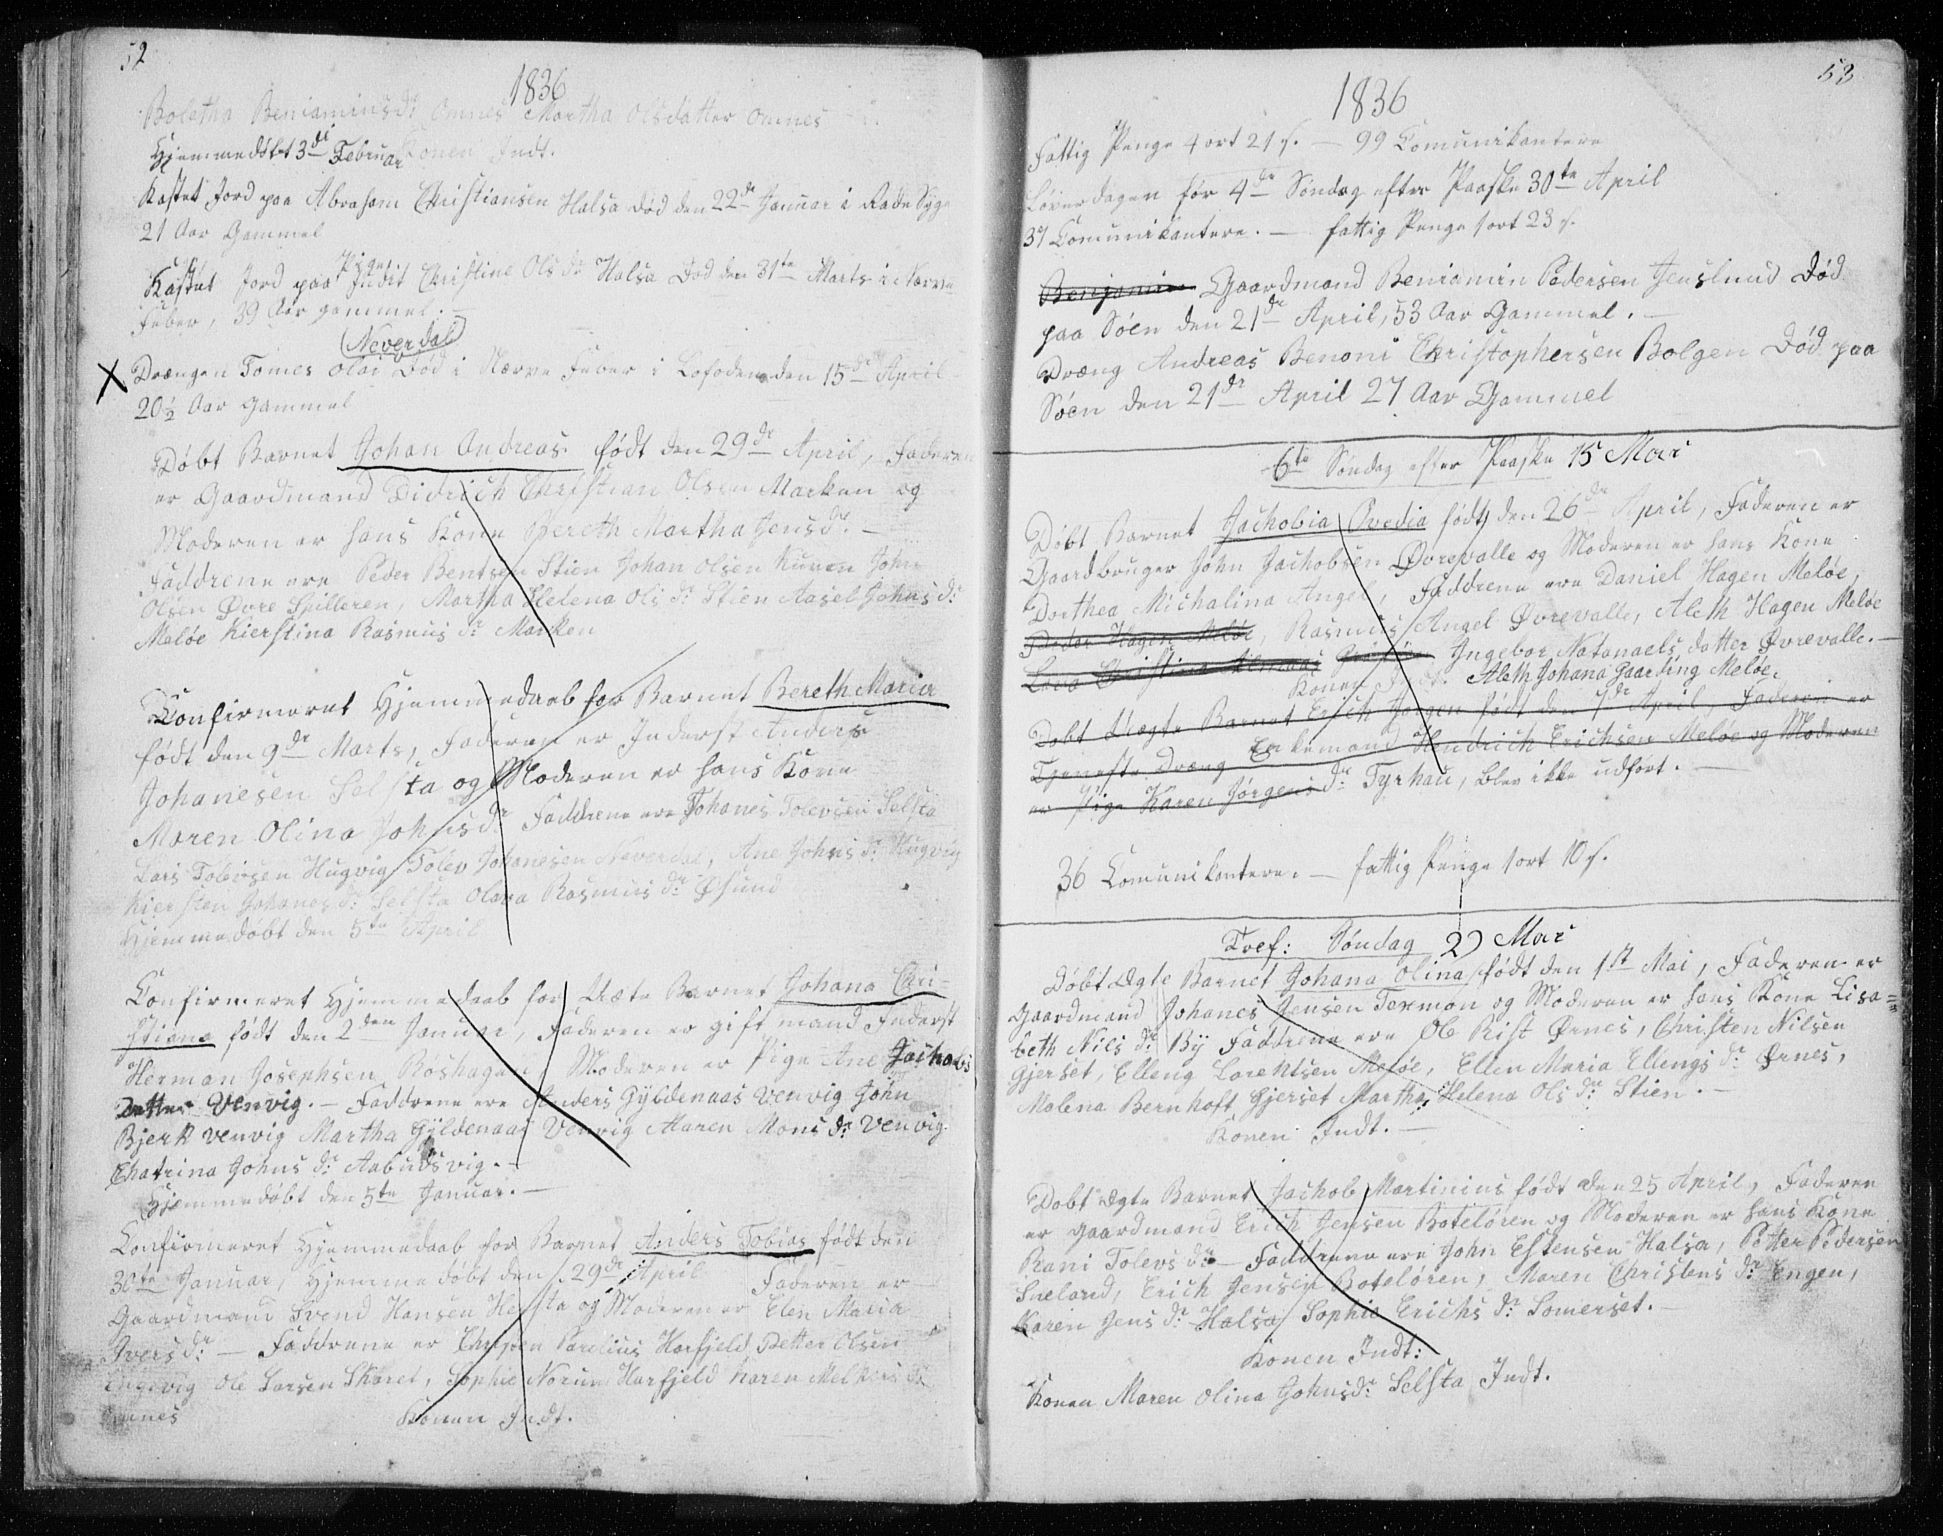 52
1836
Boletha Beniamins dr Omnes Martha Olsdatter Omnes
Hjemmedøbt 3de Februar Konen Indt.
Kastet Jord paa Abraham Christiansen Halsa død den 22de Januar i Rade Syge
21 Aar Gammel
Kastet Jord paa Pige Indit Christine Ols dr Halsa Død den 31te Marts i Nerve
Feber, 39 Aar gammel.
Neverdal
X Drengen Tomes Olai Død i Nerve Feber i Lofoden den 15de April
20½ Aar Gammel
Døbt Barnet Johan Andreas født den 29de April, Faderen
er Gaardmand Didrich Christian Olsen Marken og
Moderen er hans Kone Bereth Martha Jensdr. —
Faddrene ere Peder Bentsen Stien Johan Olsen Kunen John
Olsen Øvre Spilderen, Martha Helena Ols dr Stien Aasel Johns dr
Meløe Kierstina Rasmus dr Marken
Confirmeret Hjemmedaab for Barnet Bereth Maria
født den 9de Marts, Faderen er Inderst Anders
Johanesen Selsta og Moderen er hans Kone
Maren Olina Johnsdr Faddrene ere Johanes Tolevsen Selsta
Lars Tolevsen Hugvig Tolev Johanesen Neverdal, Ane Johns dr Hugvig
Kiersten Johanes dr Selsta Olava Rasmus dr Øsund
Hjemmedøbt den 5te April
Confirmeret Hjemmedaab for Uægte Barnet Johana Chri-
stiana født den 2den Januar, Faderen er gift mand Inderst
Herman Josephsen Røshagen, Moderen er Pige Ane Jachobs
Datter Venvig. — Faddrene ere Anders Gyldenaas Venvig John
Bjerk Venvig Martha Gyldenaas Venvig Maren Mons dr Venvig
Chatrina Johns dr Aabudsvig. —
Hjemmedøbt den 5te Januar. —
Confirmeret Hjemmedaab for Barnet Anders Tobias født den
30te Januar, Hjemmedøbt den 29de April Faderen er
Gaardmand Svend Hansen Selsta og Moderen er Elen Maria
Ivers dr — Faddrene er Christen Parelius Harfjeld, Petter Olsen
Engevig Ole Larsen Skaret, Sophie Norum Harfjeld Karen Melkiors dr
Omnes Konen Indt.
53
1836
Fattig Penge 4 ort 21 s. — 99 Comunikantere
Løverdagen før 4de Søndag efter Paaske 30te April
37 Comunikantere. — fattig Penge 1 ort 23 s.
Benjamin Gaardmand Beniamin Pedersen Jenslund Død
paa Søen den 21de April, 53 Aar Gammel. —
Dræng Andreas Benoni Christophersen Bolgen Død paa
Søen den 21de April 27 Aar Gammel
6te Søndag efter Paaske 15 Mai
Døbt Barnet Jachobia Ovedia født den 26de April, Faderen er
Gaardbruger John Jachobsen Øvrevalle og Moderen er hans Kone
Dorthea Michalina Angel, Faddrene ere Daniel Hagen Meløe,
Peder Hagen Meløe, Rasmus Angel Øvrevalle, Aleth Hagen Meløe
Lava Christina Almaas Ingebor Natanaels datter Øvrevalle. —
Konen Indt. Aleth Johana Gaarding Meløe.
Døbt Uægte Barnet Erich Jørgen født den 7de April, Faderen er
Tjeneste Dræng Enkemand Hendrich Erichsen Meløe og Moderen
er Pige Karen Jørgens dr Tyrhau, blev ikke udført. —
36 Comunikantere. — fattig Penge 1 ort 10 s.
Tref: Søndag 29 Mai
Døbt Ægte Barnet Johana Olina født den 1ste Mai, Faderen er
Gaardmand Johanes Jensen Texmon og Moderen er hans Kone Lisa=
beth Nils dr By Faddrene ere Ole Rist Ørnes, Christen Nilsen
Gjerset, Elleng Lorentsen Meløe, Ellen Maria Ellengs dr Ørnes,
Malena Bernhoft Gjerset Martha Helena Ols dr Stien. —
Konen Indt. —
Døbt Ægte Barnet Jachob Martinius født den 25 April, Faderen
er Gaardmand Erich Jensen Boteløren og Moderen er hans Kone
Rani Tolevs dr — Faddrene ere John Estensen Halsa, Petter Pedersen
Sneland, Erich Jensen Boteløren, Maren Christens dr Engen,
Karen Jens dr Halsa Sophie Erichs dr Somerset. —
Konen Indt:
Konen Maren Olina Johns dr Selsta Indt.